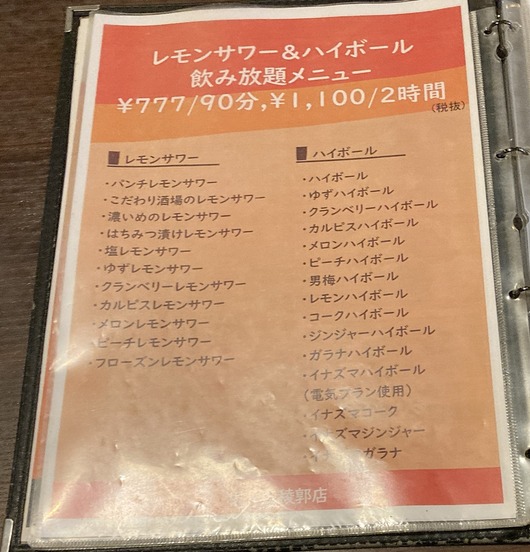 レモンサワー＆ハイボール
飲み放題メニュー
¥777/90分,¥1,100/2時間
（税抜）
レモンサワー
・パンチレモンサワー
・こだわり酒場のレモンサワー
・濃いめのレモンサワー
・はちみつ漬けレモンサワー
・塩レモンサワー
・ゆずレモンサワー
・クランベリーレモンサワー
・カルピスレモンサワー
・メロンレモンサワー
・ピーチレモンサワー
・フローズンレモンサワー
ハイボール
・ハイボール
・ゆずハイボール
・クランベリーハイボール
・カルピスハイボール
・メロンハイボール
・ピーチハイボール
・男梅ハイボール
・レモンハイボール
・コークハイボール
・ジンジャーハイボール
・ガラナハイボール
・イナズマハイボール
（電気ブラン使用）
・イナズマコーク
・イナズマジンジャー
ガラナ
稜郭店